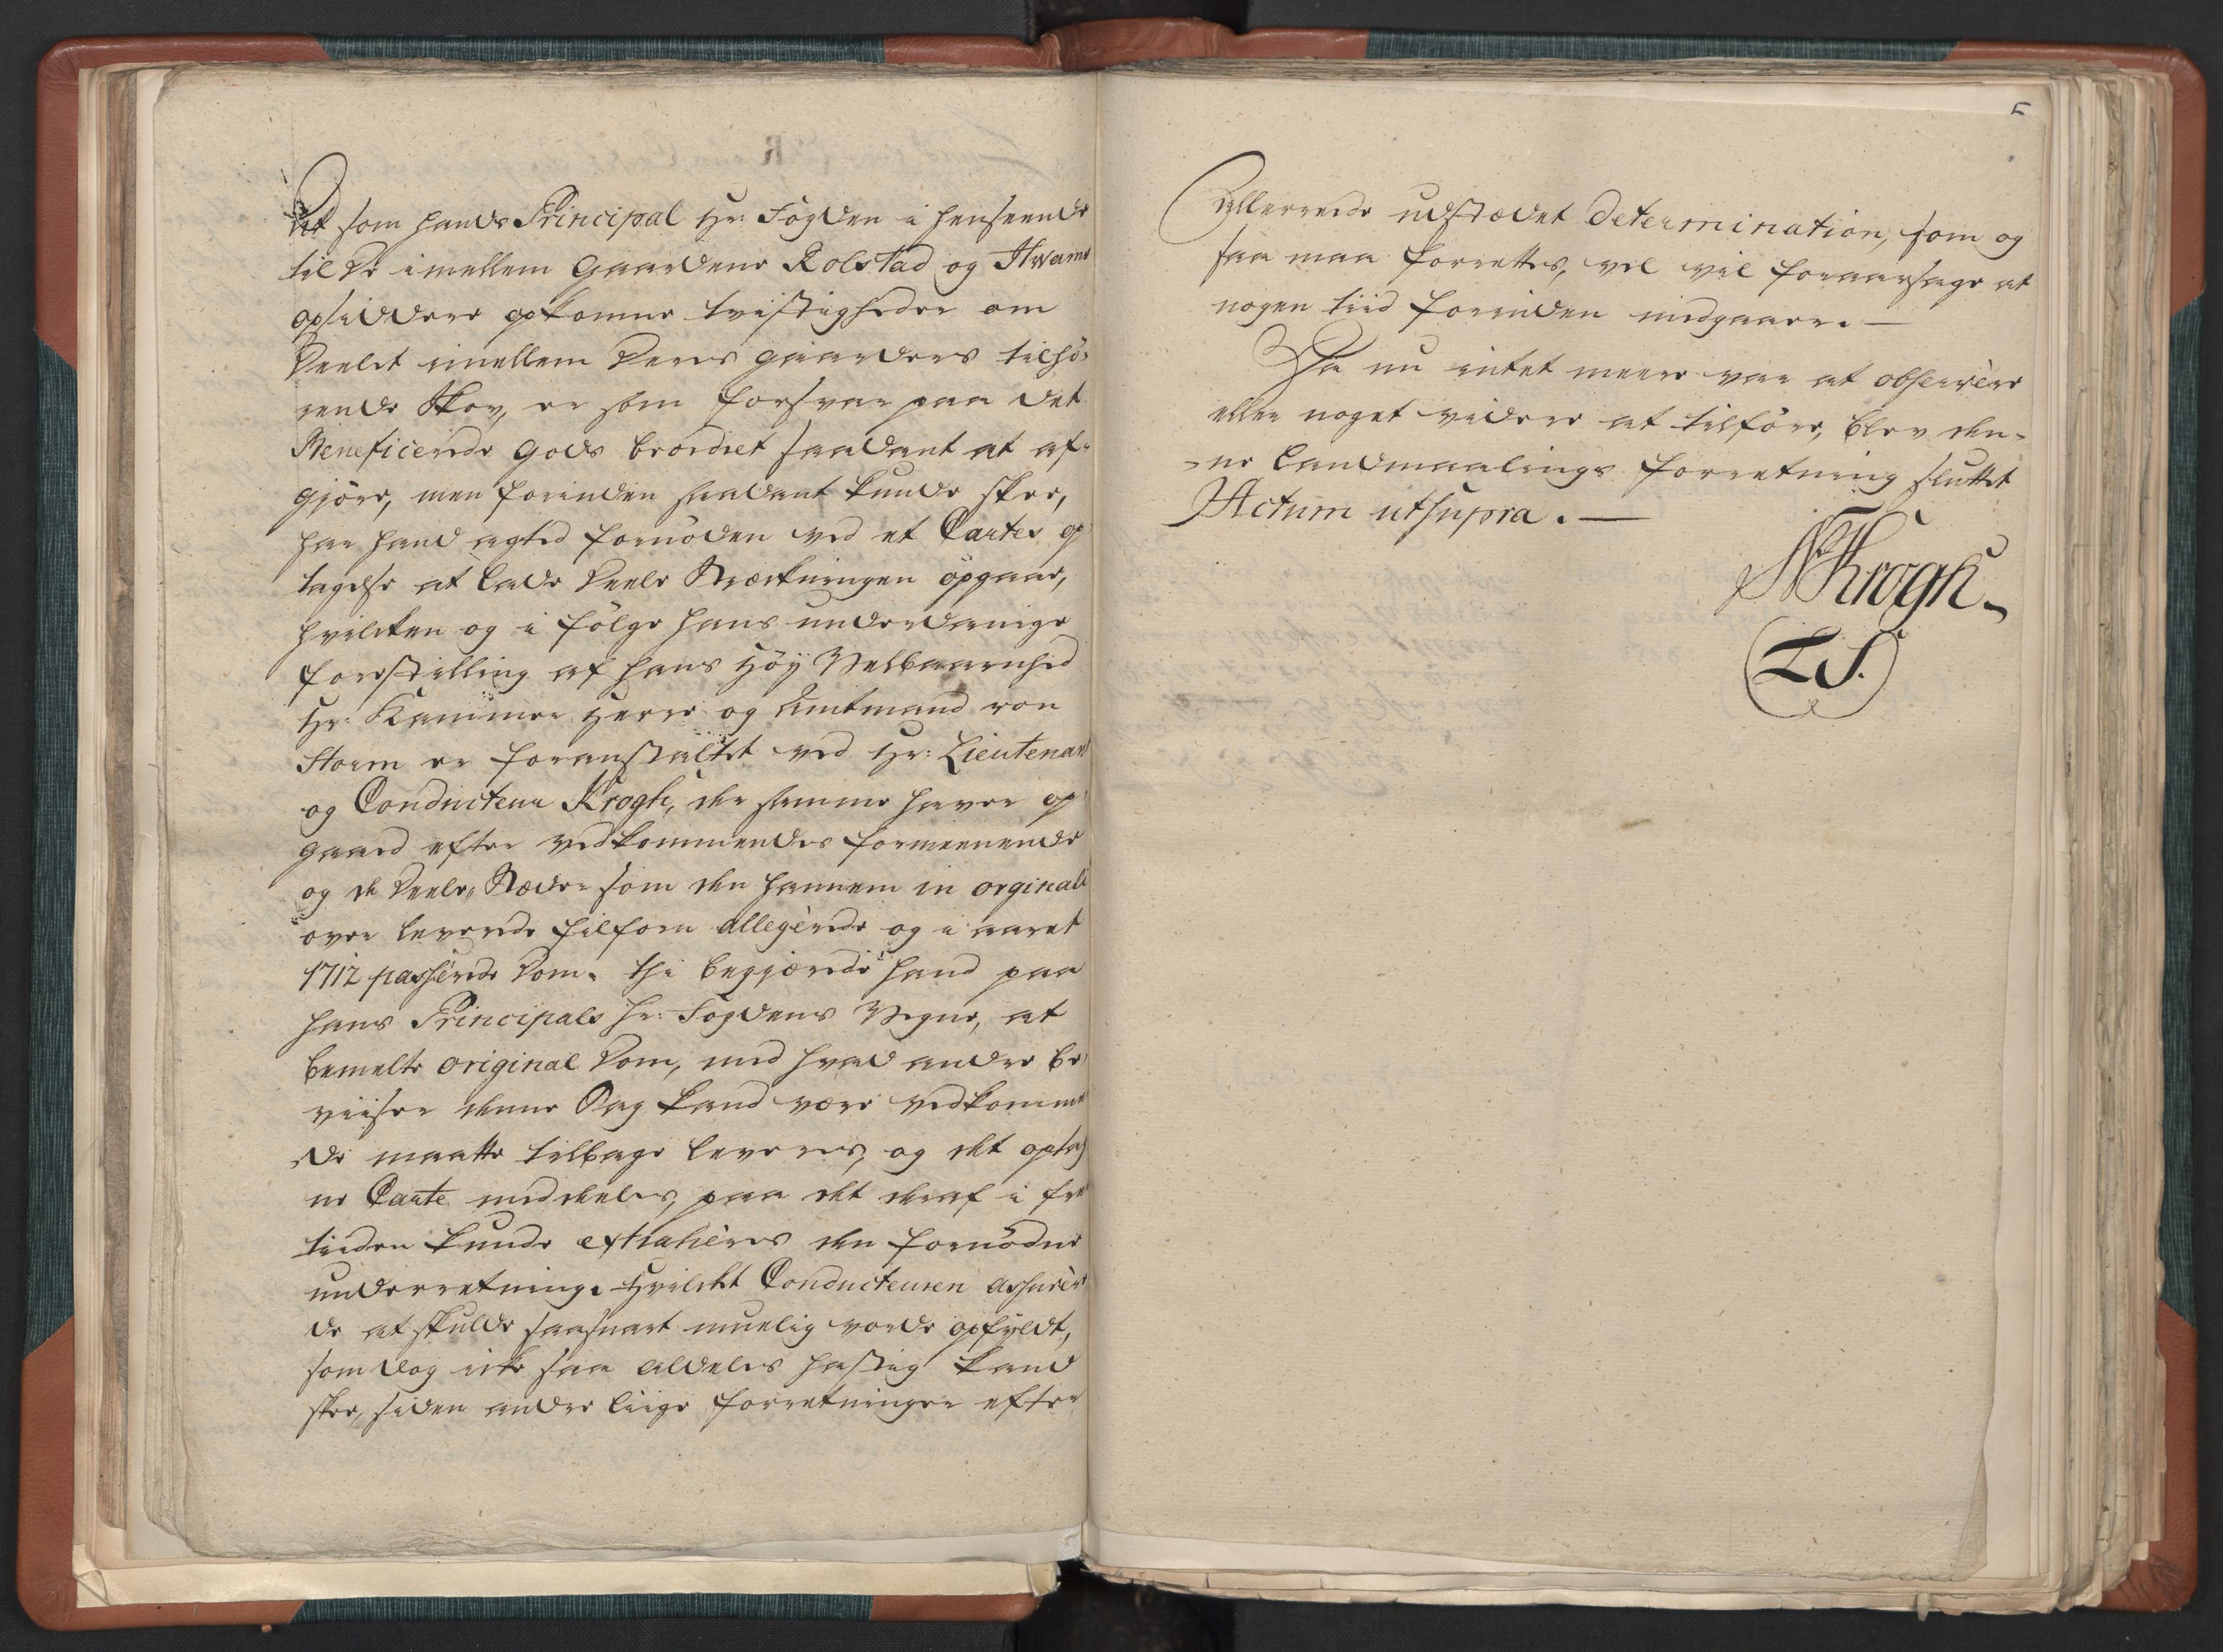 At som hands Principal Hr: Fogden i henseende
til de imellem Gaardene Rolstad og Hvams
opsiddere opkomne tvistigheder om
Deelet imellem deres gaarders tilhø-
rende Skov, er som forsvar paa det
Beneficerede Gods beordret saadant at af-
gjöre, men forinden saadant kunde skee,
har hand agted fornöden ved et Cartes op
tagelse at lade Deele Strækningen opgaae,
hvilcken og i fölge hans underdanige
forestilling af hans Höy Velbaarenhed
Hr: Kammer Herre og Amtmand von
Storm er foranstaltet ved Hr: Lieutenant
og Conducteur Krogh, der samme haver op
gaaed efter vedkommendes formeenende
og de Deeles Stæder som den hannem in orginali
over leverede hilforn allegerede og i aaret
1712 passerede Dom. thi begjærede hand paa
hans Principals Hr: Fogdens Vegne, at
bemelte original Dom, med hvad andre be
viiser denne Sag kand være vedkommen
de maatte tilbage leveres, og det optag
ne Carte meddeles, paa det deraf i frem
tiiden kunde extraheres den fornödne
underretning. Hvilcket Conducteuren assurere
de at skulde saasnart muelig vorde opfyldt,
som dog icke saa aldeles hastig kand
skee, siden andre liige forretninger efter
allereede udstædet Determination, som og
saa maa forrettes, vel vil foraarsage at
nogen tiid forinden medgaaer. —
Da nu intet meere var at observere
eller noget videre at tilföre, blev den-
-ne Landmaalings forretning sluttet
Actum utsupra. —
Krogh.
L S.